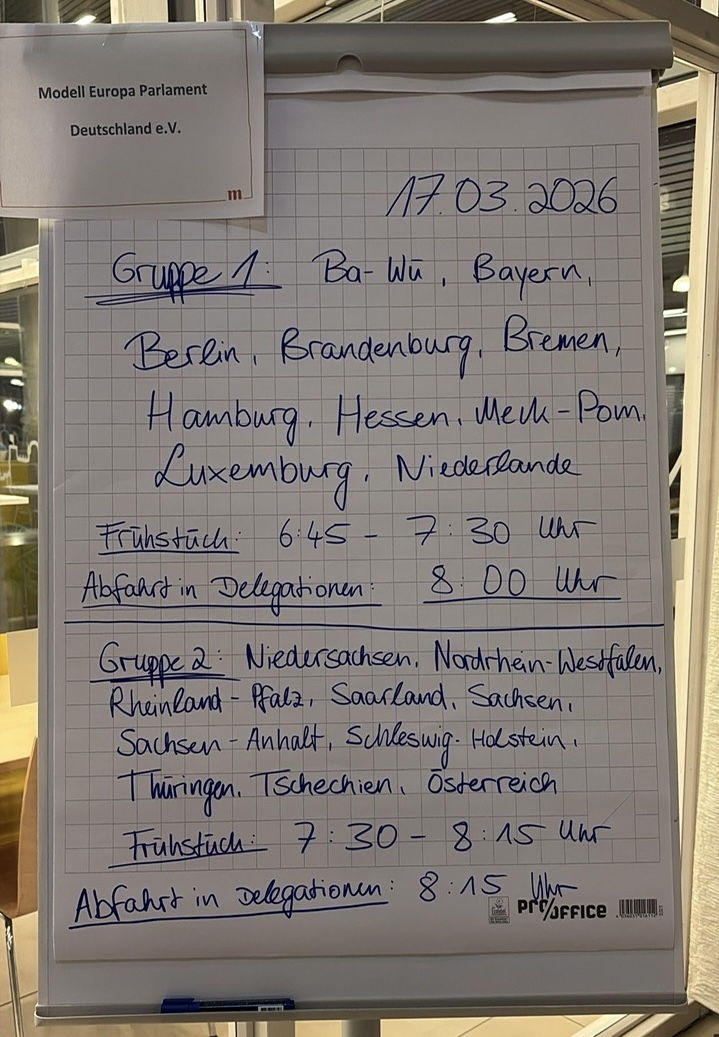 Modell Europa Parlament
Deutschland e.V.
m
17.03.2026
Gruppe 1: Ba-Wü, Bayern,
Berlin, Brandenburg, Bremen,
Hamburg, Hessen, Meck-Pom,
Luxemburg, Niederlande
Frühstück: 6:45 - 7:30 Uhr
Abfahrt in Delegationen: 8:00 Uhr
Gruppe 2: Niedersachsen, Nordrhein-Westfalen,
Rheinland-Pfalz, Saarland, Sachsen,
Sachsen-Anhalt, Schleswig-Holstein,
Thüringen, Tschechien, Österreich
Frühstück: 7:30 - 8:15 Uhr
Abfahrt in Delegationen: 8:15 Uhr
PRO/OFFICE